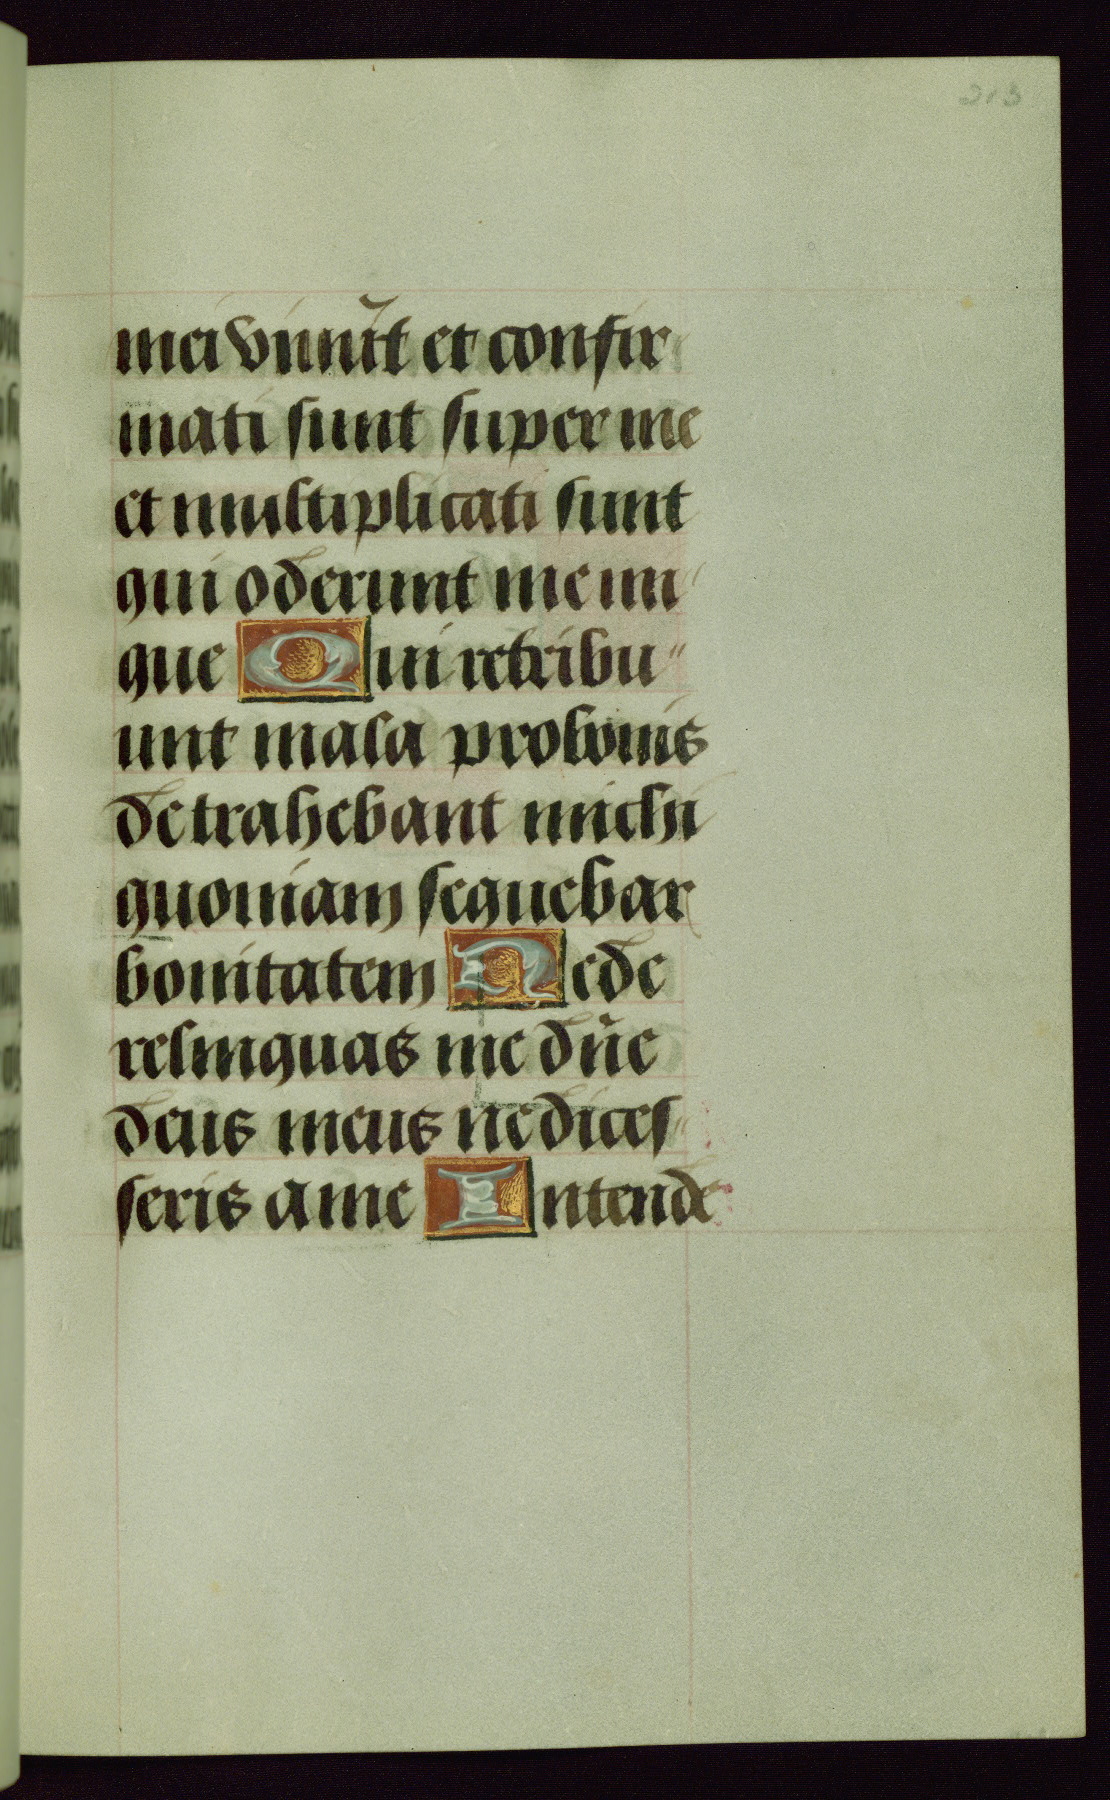 213
mei viuūt et confir
mati sunt super me
et multiplicati sunt
qui oderunt me ini
que Qui retribu
unt mala pro bonis
detrahebant michi
quoniam sequebar
bonitatem Ne de
relinquas me dñe
deus meus ne dices
seris a me Intende